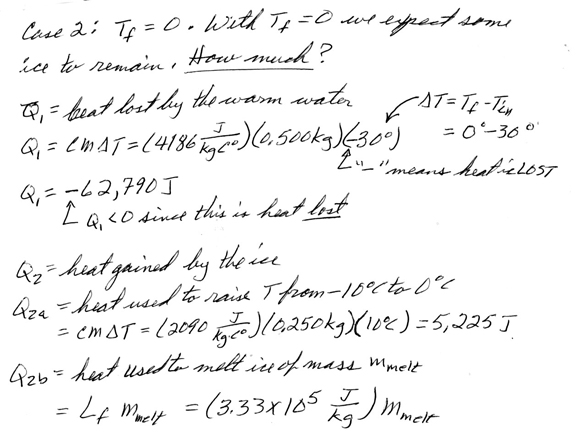 Case 2: T_f = 0. With T_f = 0 we expect some
ice to remain. How much?
Q₁ = heat lost by the warm water
ΔT = T_f - T_in
Q₁ = cmΔT = (4186 J/kgC°)(0.500kg)(-30°)
= 0° - 30°
"-" means heat is LOST
Q₁ = -62,790 J
Q₁ < 0 since this is heat lost
Q₂ = heat gained by the ice
Q₂ₐ = heat used to raise T from -10°C to 0°C
= cmΔT = (2090 J/kgC°)(0.250kg)(10°C) = 5,225 J
Q₂b = heat used to melt ice of mass m_melt
= L_f m_melt = (3.33×10⁵ J/kg) m_melt